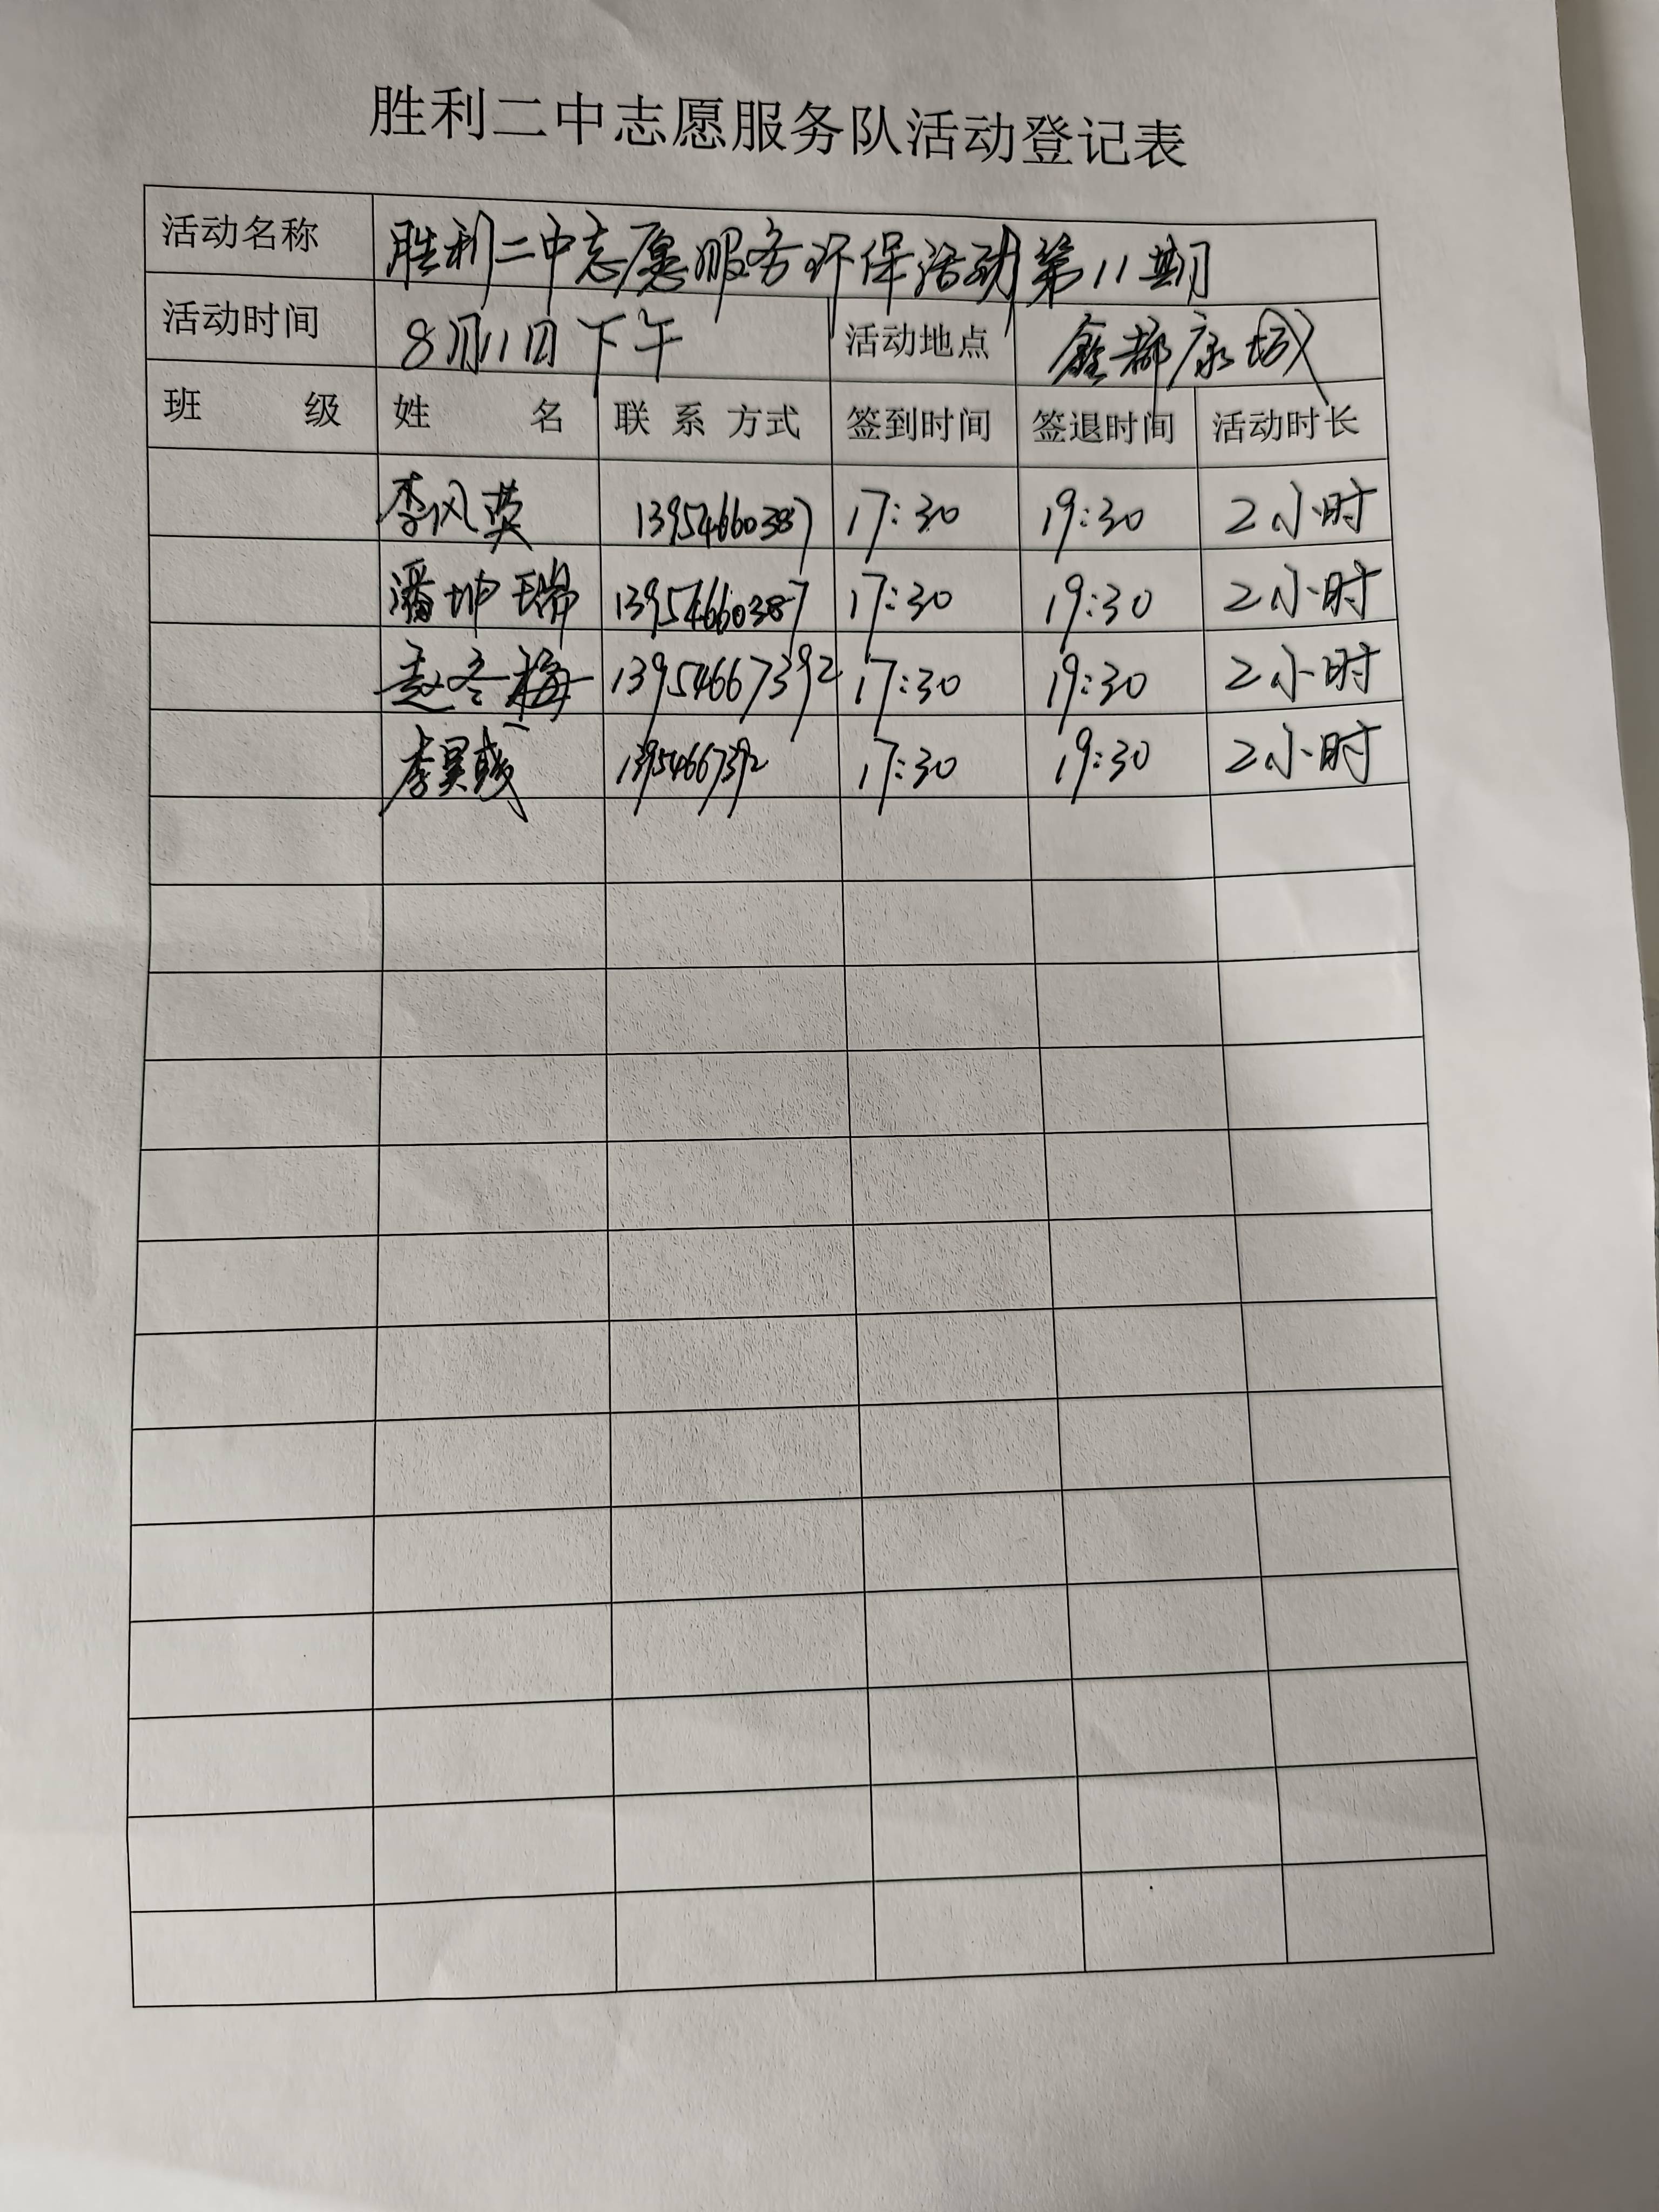 胜利二中志愿服务队活动登记表
活动名称 胜利二中志愿服务环保活动第11期
活动时间 8月11日下午 活动地点 鑫都康城
班 级 姓 名 联 系 方式 签到时间 签退时间 活动时长
李风英 13954660387 17:30 19:30 2小时
潘坤瑞 13954660387 17:30 19:30 2小时
赵冬梅 13954667392 17:30 19:30 2小时
李昊彧 13954667392 17:30 19:30 2小时